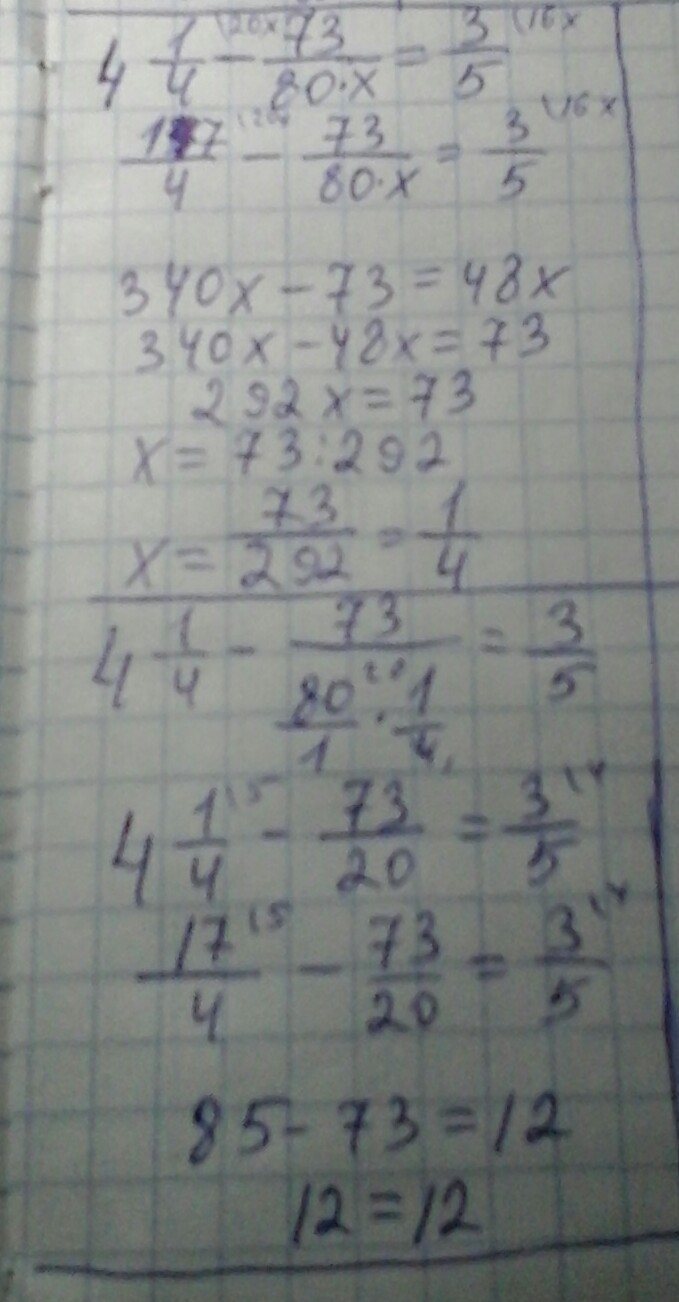 4 1/4 \20x - 73/(80·x) = 3/5 \16x
17/4 \20x - 73/(80·x) = 3/5 \16x
340x - 73 = 48x
340x - 48x = 73
292x = 73
x = 73:292
x = 73/292 = 1/4
4 1/4 - 73/(80/1 · 1/4) = 3/5
4 1/4 \5 - 73/20 = 3/5 \4
17/4 \5 - 73/20 = 3/5 \4
85 - 73 = 12
12 = 12